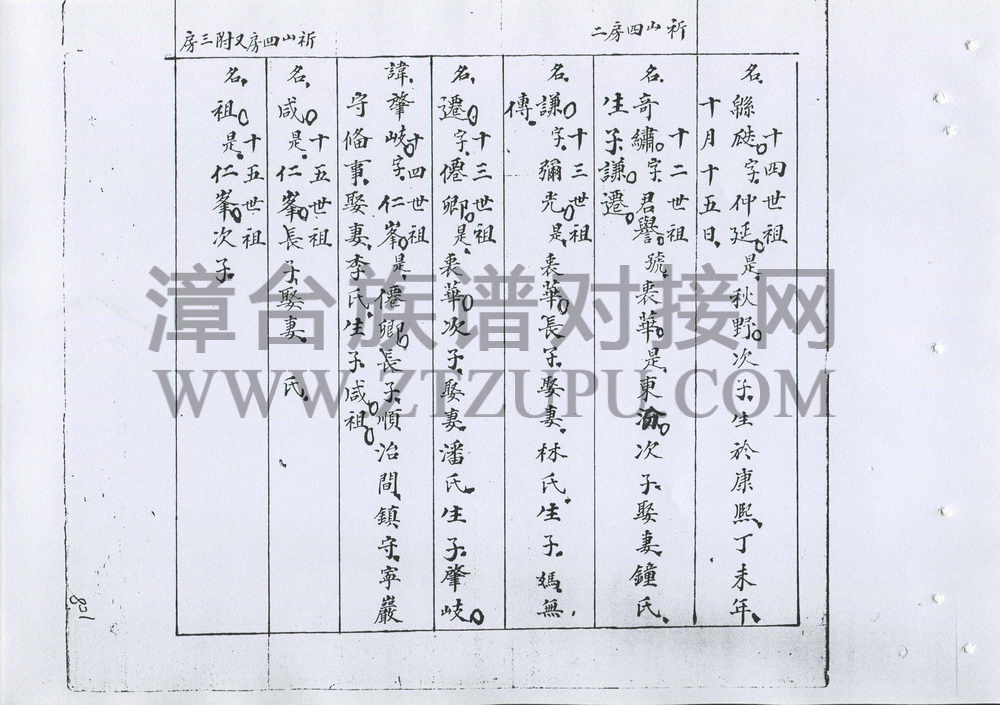 祈山四房二
祈山四房又附三房
十四世祖
名緜砝字仲延是秋野次子生於康熙丁未年
十月十五日
十二世祖
名奇繡字君譽號裹華是東次子娶妻鐘氏
生子謙遷
十三世祖
名謙字彌光是裹華長子娶妻林氏生子媽無
傳
十三世祖
名遷字僊卿是裹華次子娶妻潘氏生子肇岐
十四世祖
諱肇岐字仁峯是僊卿長子順治間鎮守寧巖
守俻事娶妻李氏生子咸祖
十五世祖
名咸是仁峯長子娶妻 氏
十五世祖
名祖是仁峯次子
漳台族谱对接网
WWW.ZTZUPU.COM